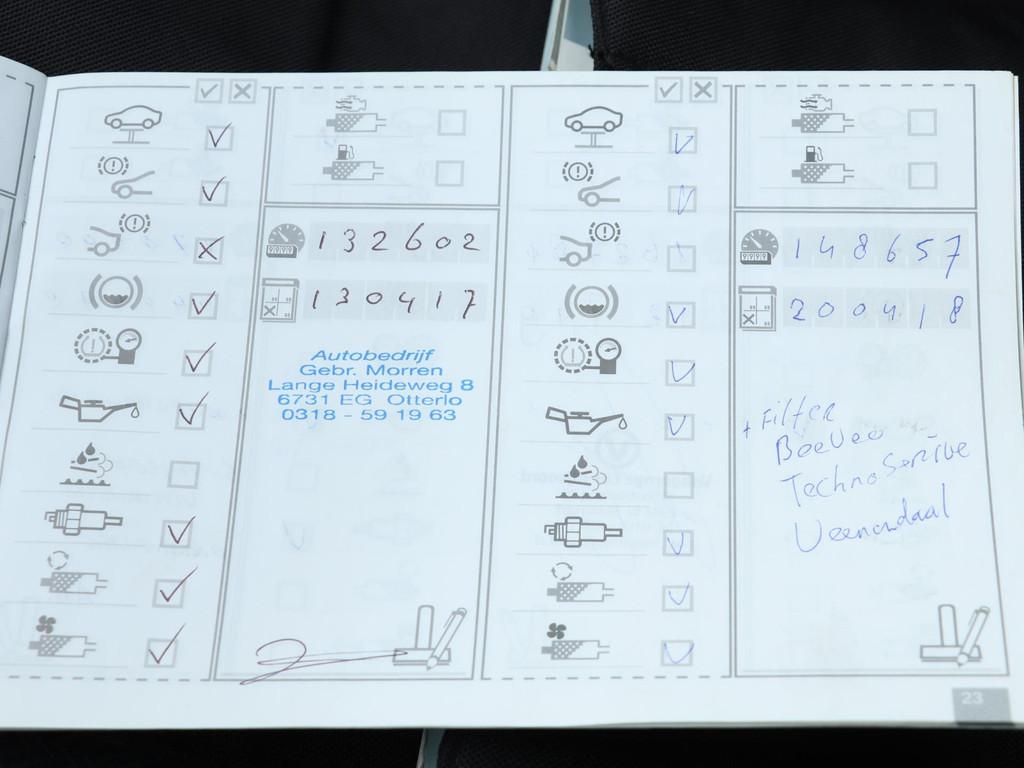 132602
130417
Autobedrijf
Gebr. Morren
Lange Heideweg 8
6731 EG Otterlo
0318 - 59 19 63
148657
200418
+ Filter
BoeVee
Techno Service
Veenendaal
23